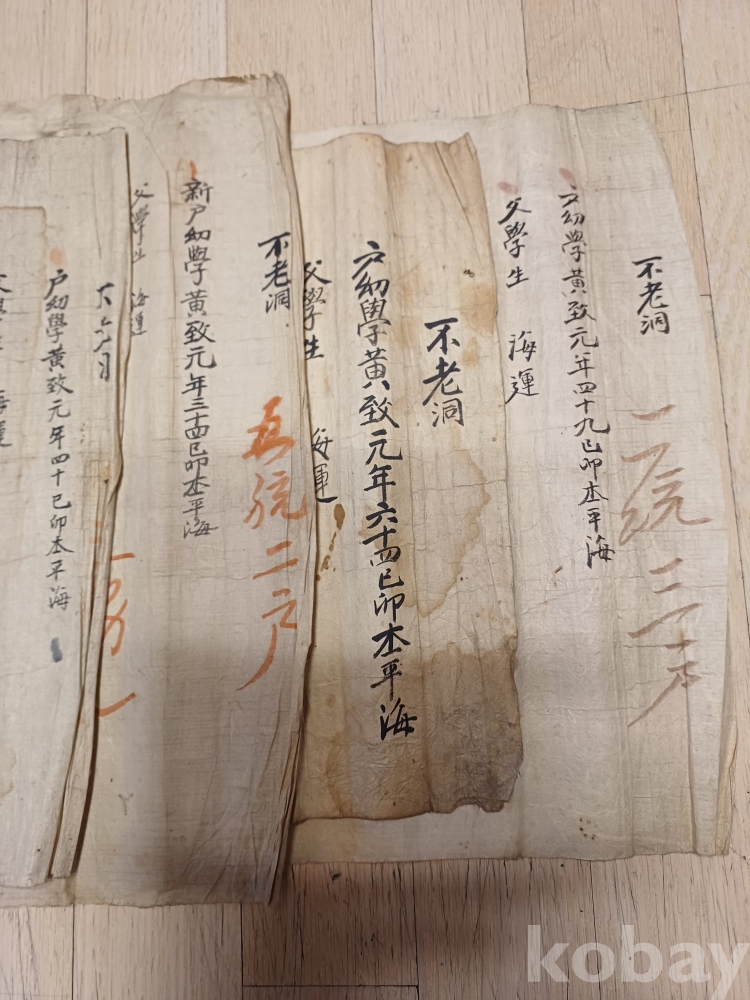 不老洞
一統三戶
戶幼學黃致元年四十九己卯本平海
父學生 海運
不老洞
戶幼學黃致元年六十四己卯本平海
父學生 海運
不老洞
五統二戶
新戶幼學黃致元年三十四己卯本平海
父學生 海運
戶幼學黃致元年四十己卯本平海
海運
kobay